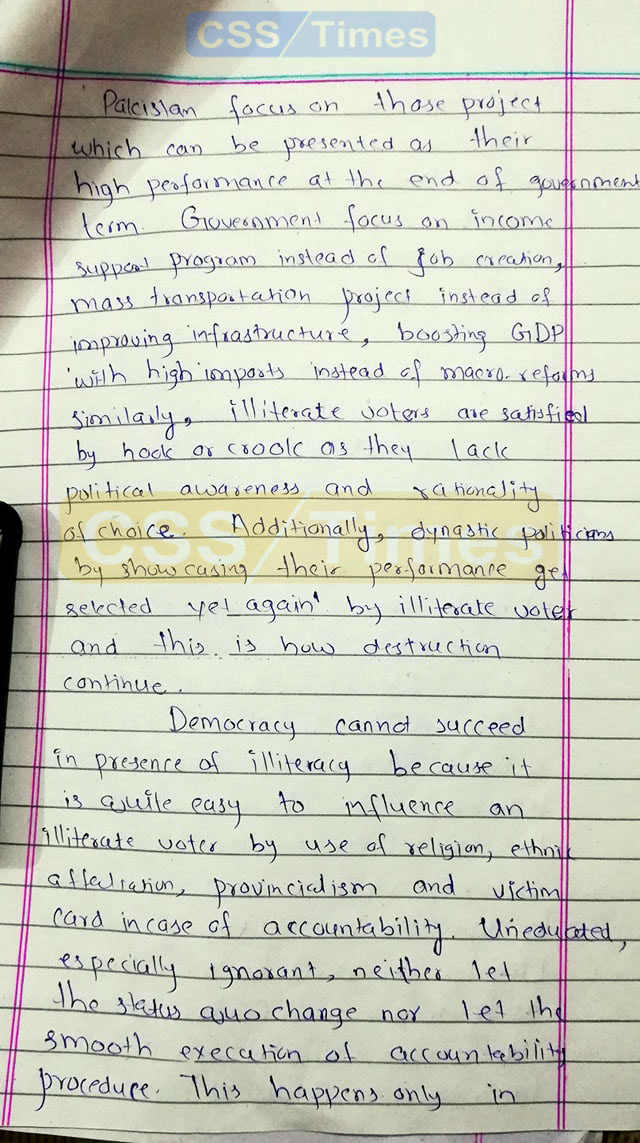 CSS/Times
Pakistan focus on those project
which can be presented as their
high performance at the end of government
term. Government focus on income
support program instead of job creation,
mass transportation project instead of
improving infrastructure, boosting GDP
with high imports instead of macro-reforms
similarly, illiterate voters are satisfied
by hook or crook as they lack
political awareness and rationality
of choice. Additionally, dynastic politicians
CSS/Times
by showcasing their performance get
selected yet again by illiterate voter
and this is how destruction
continue.
Democracy cannot succeed
in presence of illiteracy because it
is quite easy to influence an
illiterate voter by use of religion, ethnic
provincialism and victim
card incase of accountability. Uneducated,
especially ignorant, neither let
the status quo change nor let the
smooth execution of accountability
procedure. This happens only in